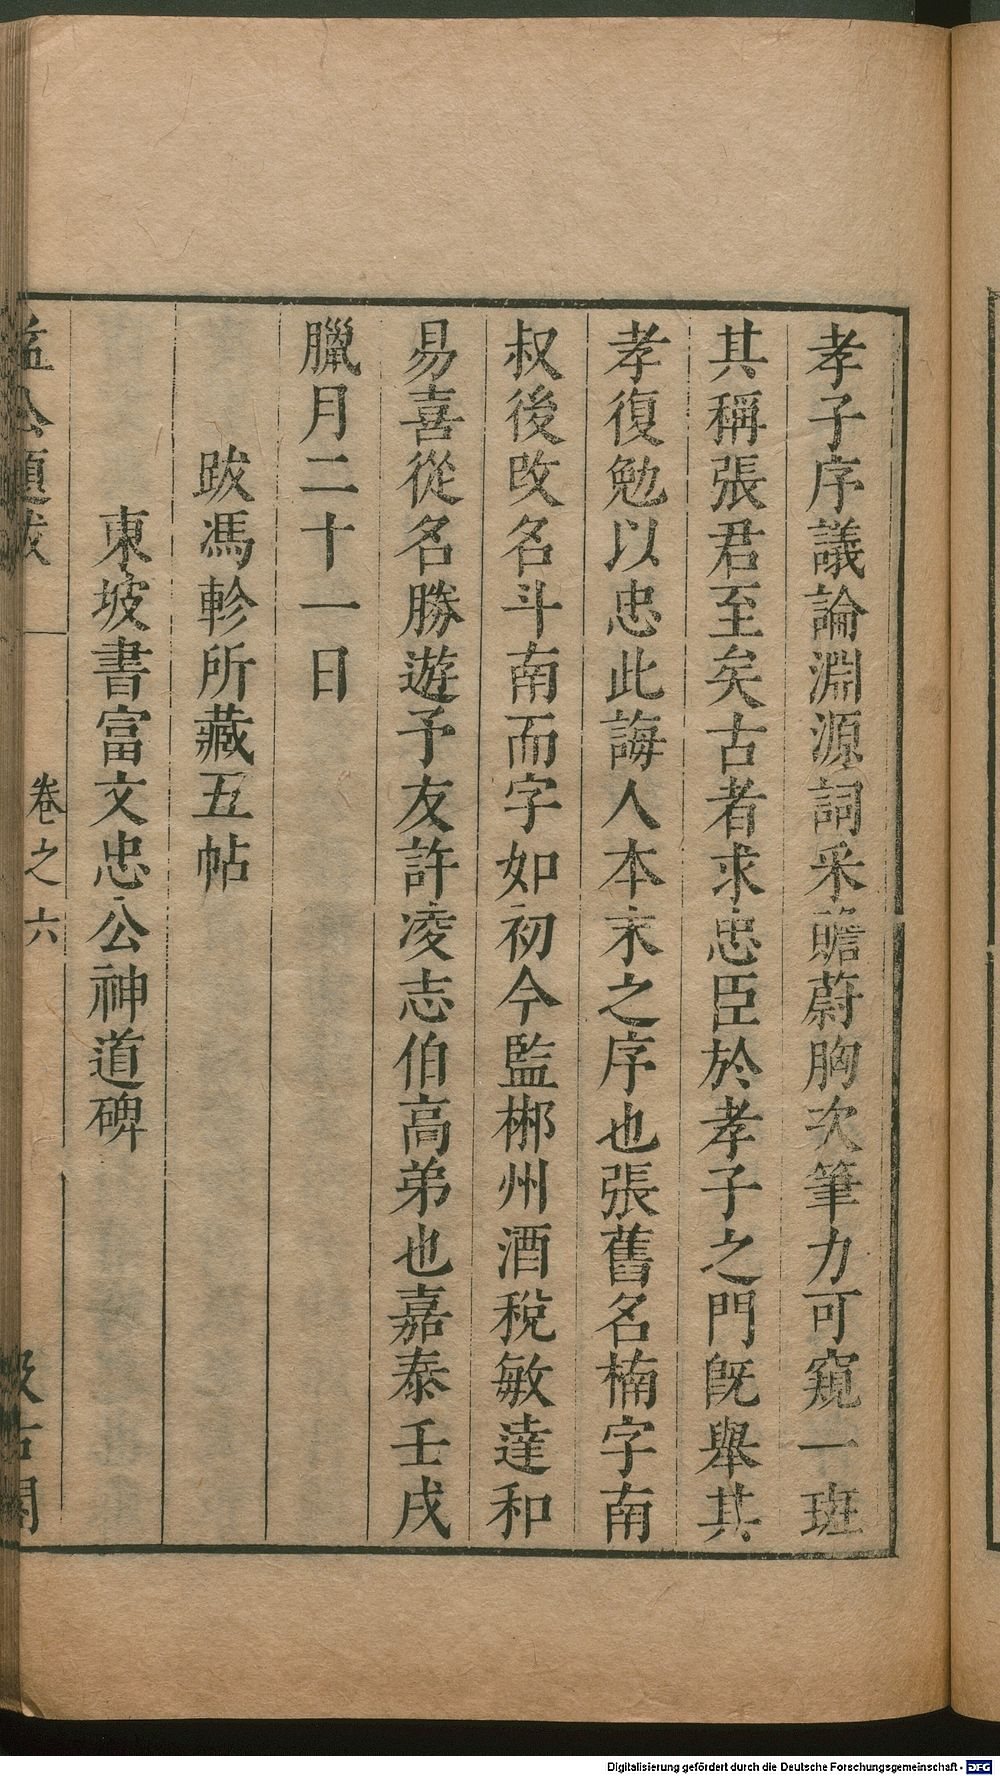 孝子序議論淵源詞采贍蔚胸次筆力可窺一班
其稱張君至矣古者求忠臣於孝子之門旣舉其
孝復勉以忠此誨人本末之序也張舊名楠字南
叔後改名斗南而字如初今監郴州酒稅敏達和
易喜從名勝遊予友許凌志伯高弟也嘉泰壬戌
臘月二十一日
跋馮軫所藏五帖
東坡書富文忠公神道碑
益公題跋
卷之六
汲古閣
Digitalisierung gefördert durch die Deutsche Forschungsgemeinschaft - DFG